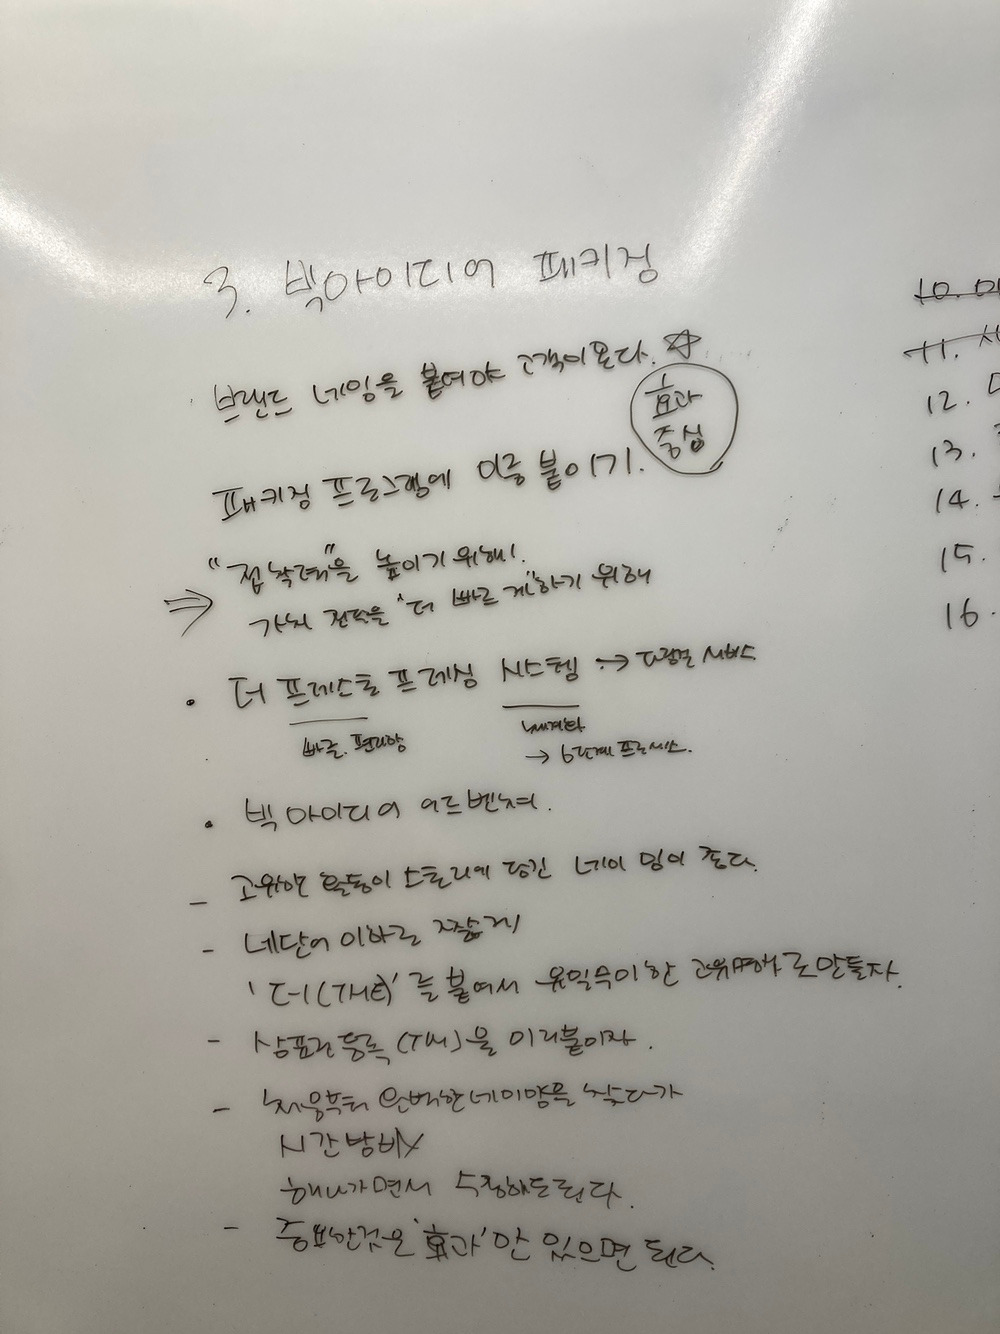 3. 빅아이디어 패키징
브랜드 네임을 붙여야 고객이 온다. ☆
효과
중심
패키징 프로그램에 이름 붙이기.
"접착력"을 높이기 위해!
⇒ 가치 전달을 '더 빠르게'하기 위해
• 더 프레스토 프레싱 시스템 → 다림질 서비스
빠름. 편리함
체계화
→ 6단계 프로세스.
• 빅 아이디어 어드벤쳐.
- 고유한 활동이 스토리에 담긴 네이밍이 좋다.
- 네단어 이하로 짧게
'더(THE)'를 붙여서 유일무이한 고유명사로 만들자.
- 상표권 등록 (TM)을 미리붙이자.
- 처음부터 완벽한 네이밍을 찾다가
시간낭비X
해나가면서 수정해도 된다.
- 중요한것은 '효과'만 있으면 된다.
10.
11.
12.
13.
14.
15.
16.